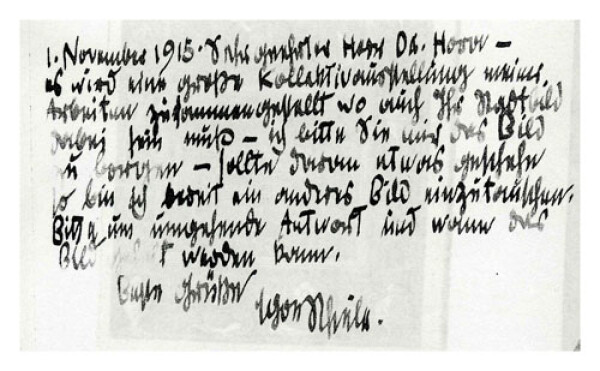 1. November 1915. Sehr geehrter Herr Dr. Horn –
es wird eine große Kollektivausstellung meiner
Arbeiten zusammengestellt wo auch Ihr Stadtbild
dabei sein muß – ich bitte Sie mir das Bild
zu borgen – sollte daran etwas geschehn
so bin ich bereit ein anderes Bild einzutauschen.
Bitte um umgehende Antwort und wann das
Bild werden kann.
beste Grüße
Egon Schiele.